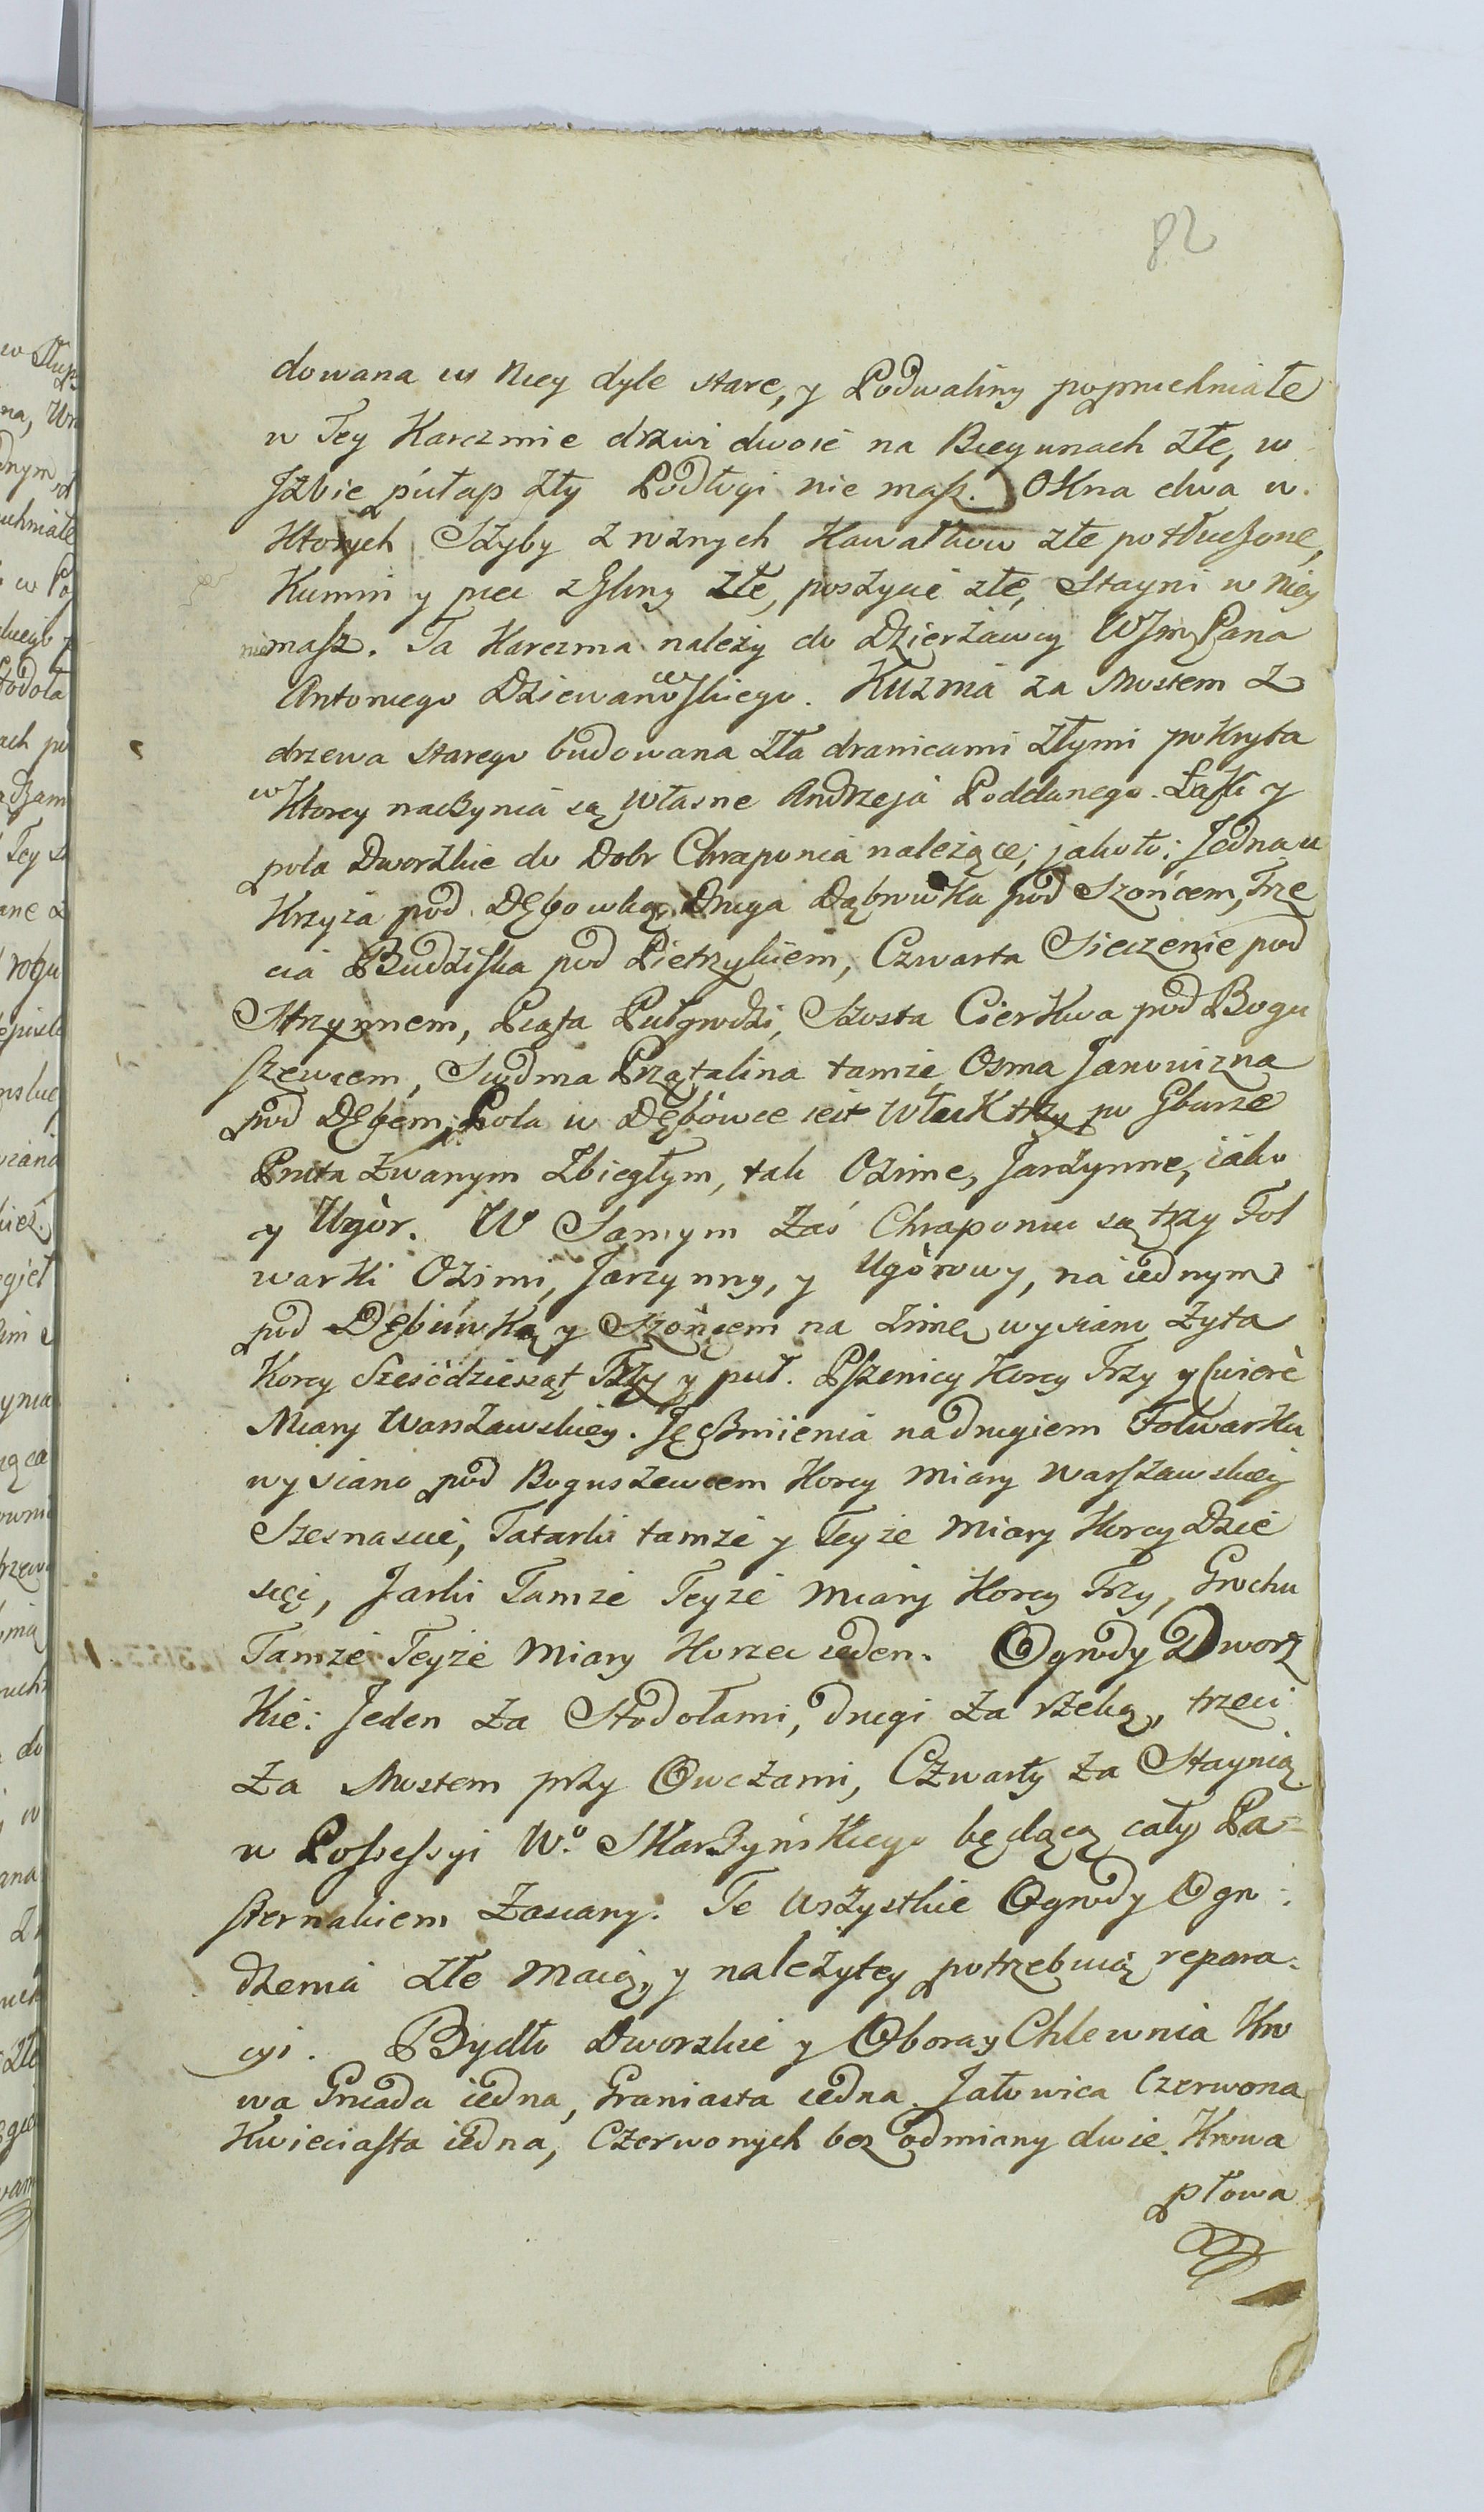 82
dowana w Niey dyle stare, y Podwaliny popruchniałe
w Tey Karczmie drzwi dwoie na Biegunach złe, w
Jzbie pułap zły Podłogi nie masz. Okna dwa w
Ktorych Szyby z rożnych Kawałkow złe potłuczone,
Kumin y piec z Gliny złe, poszycie złe, Stayni w Niey
niemasz. Ta Karczma należy do Dzierżawcy WJm Pana
Antoniego Dziewanowskiego. Kuznia za Mostem z
drzewa starego budowana zła dranicami złymi pokryta
w Ktorey naczynia są własne Andrzeja Poddanego. Łąki y
pola Dworzkie do Dobr Chraponia należące; jakoto: Jedna u
Krzyża pod Dębowką, Druga Dąbrowka pod Szońcem, Trze
cia Budziska pod Pietrzykiem, Czwarta Sieczenie pod
Strzynnem, Piąta Pulgrodzi, Szosta Cierkwa pod Bogu
szewcem, Siodma Prątalina tamże, Osma Janowizna
pod Dębem, Pola w Dębówce iest Włuk trzy po Gburze
Pruta zwanym Zbiegłym, tak Ozime, Jarzynne, iako
y Ugòr. W Samym zaś Chraponiu są trzy Fol
warki Ozimi, Jarzynny, y Ugòrowy, na iednym
pod Dębówką y Szońcem na zimę wysiano Zyta
Korcy Sześćdziesząt Trzy y puł. Pszenicy Korcy Trzy y Cwierć
Miary Warszawskiey. Jęczmienia na drugiem Folwarku
wysiano pod Boguszewcem Korcy miary warszawskiey
Szesnascie, Tatarki tamże y Teyże Miary Korcy Dzie
sięć, Jarki Tamże Teyże Miary Korcy Trzy, Grochu
Tamże Teyże Miary Korzec ieden. Ogrody Dworz
Kie: Jeden za Stodołami, drugi za rzeką, trzeci
za Mostem przy Owczarni, Czwarty za Staynią
w Possessyi W.º Skarzyńskiego będącą cały Pa=
sternakiem zasiany. Te wszystkie Ogrody Ogro:
dzenia złe maią, y należytey potrzebuią repara:
cyi. Bydło Dworzkie y Obora y Chlewnia Kro
wa Gniada iedna, Graniasta iedna. Jałowica Czerwona
Kwieciasta iedna, Czerwonych bez odmiany dwie. Krowa
płowa